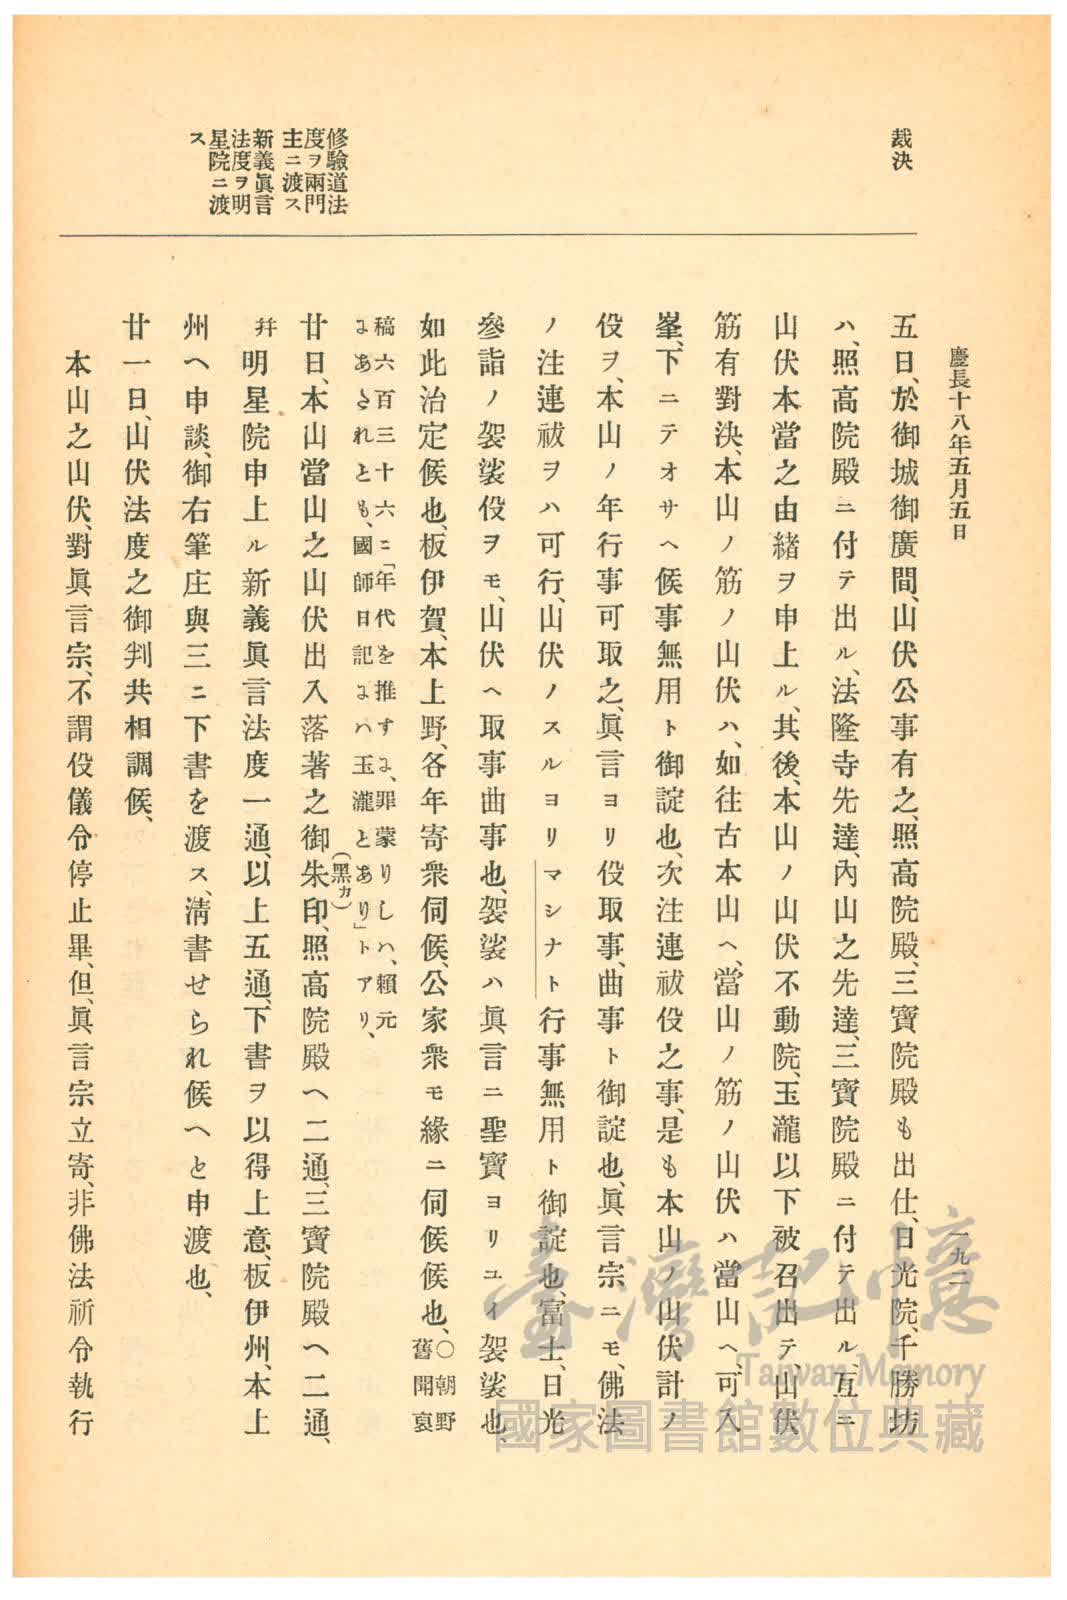 慶長十八年五月五日
一九二
裁決
五日、於御城御廣間、山伏公事有之、照高院殿、三寶院殿も出仕、日光院、千勝坊
ハ、照高院殿ニ付テ出ル、法隆寺先達、內山之先達、三寶院殿ニ付テ出ル、互ニ
山伏本當之由緒ヲ申上ル、其後、本山ノ山伏不動院、玉瀧以下被召出テ、山伏
筋有對決、本山ノ筋ノ山伏ハ、如往古本山ヘ、當山ノ筋ノ山伏ハ當山ヘ、可入
峯、下ニテオサヘ候事無用ト御諚也、次注連祓役之事、是も本山ノ山伏計ノ
役ヲ、本山ノ年行事可取之、眞言ヨリ役取事、曲事ト御諚也、眞言宗ニモ、佛法
ノ注連祓ヲハ可行、山伏ノスルヨリマシナト行事無用ト御諚也、富士、日光
參詣ノ袈裟役ヲモ、山伏ヘ取事曲事也、袈裟ハ眞言ニ聖寶ヨリユイ袈裟也、
如此治定候也、板伊賀、本上野、各年寄衆伺候、公家衆モ緣ニ伺候候也、○朝野
舊聞裒
稿六百三十六ニ「年代を推すに、罪蒙りしハ、賴元
にあされとも、國師日記にハ玉瀧とあり」トアリ、
修驗道法
度ヲ兩門
主ニ渡ス
廿日、本山當山之山伏出入落著之御朱印、照高院殿ヘ二通、三寶院殿ヘ二通、
(黑カ)
新義眞言
法度ヲ明
星院ニ渡
ス
幷明星院申上ル新義眞言法度一通、以上五通、下書ヲ以得上意、板伊州、本上
州ヘ申談、御右筆庄與三ニ下書を渡ス、淸書せられ候へと申渡也、
廿一日、山伏法度之御判共相調候、
本山之山伏、對眞言宗、不謂役儀令停止畢、但、眞言宗立寄、非佛法祈令執行
臺灣記憶
Taiwan Memory
國家圖書館數位典藏